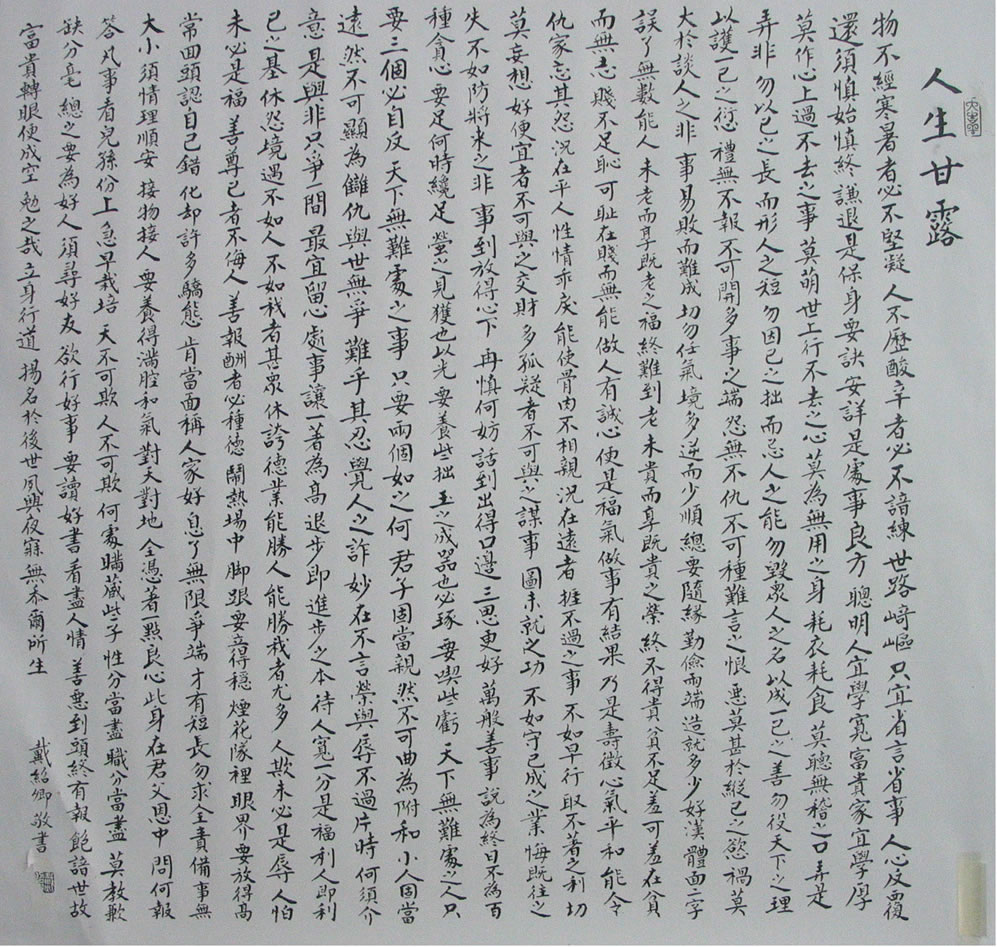 人生甘露
物不經寒暑者必不堅凝 人不歷酸辛者必不諳練 世路崎嶇 只宜省言省事 人心反覆
還須慎始慎終 謙退是保身要訣 安詳是處事良方 聰明人宜學寬 富貴家宜學厚
莫作心上過不去之事 莫萌世上行不去之心 莫為無用之身耗衣耗食 莫聽無稽之口弄是
弄非 勿以己之長而形人之短 勿因己之拙而忌人之能 勿毀眾人之名以成一己之善 勿役天下之理
以護一己之愆 禮無不報 不可開多事之端 怨無不仇 不可種難言之恨 惡莫甚於縱己之慾 禍莫
大於談人之非 事易敗而難成 切勿任氣 境多逆而少順 總要隨緣 勤儉兩端造就多少好漢 體面二字
誤了無數能人 未老而享既老之福 終難到老 未貴而享既貴之榮 終不得貴 貧不足羞 可羞在貧
而無志 賤不足恥 可耻在賤而無能 做人有誠心便是福氣 做事有結果乃是壽徵 心氣平和 能令
仇家忘其怨 況在平人 性情乖戾 能使骨肉不相親 況在遠者 推不過之事 不如早行 取不著之利 切
莫妄想 好便宜者不可與之交財 多孤疑者不可與之謀事 圖未就之功 不如守已成之業 悔既往之
失 不如防將來之非 事到放得心下 再慎何妨 話到出得口邊 三思更好 萬般善事 說為終日不為 百
種貪心 要足何時纔足 螢之見獲也以光 要養些拙 玉之成器也必琢 要喫些虧 天下無難處之人 只
要三個必自反 天下無難處之事 只要兩個如之何 君子固當親 然不可曲為附和 小人固當
遠 然不可顯為讎仇 與世無爭 難乎其忍 覺人之詐 妙在不言 榮與辱不過片時 何須介
意 是與非只爭一間 最宜留心 處事讓一著為高 退步即進步之本 待人寬一分是福 利人即利
己之基 休怨境遇不如人 不如我者甚眾 休誇德業能勝人 能勝我者尤多 人欺未必是辱 人怕
未必是福 善尊己者不侮人 善報酬者必種德 鬧熱場中 脚跟要立得穩 煙花隊裡 眼界要放得高
常回頭認自己錯 化却許多驕態 肯當面稱人家好 息了無限爭端 才有短長 勿求全責備 事無
大小 須情理順安 接物接人 要養得滿腔和氣 對天對地 全憑著一點良心 此身在君父恩中 問何報
答 凡事看兒孫份上 急早栽培 天不可欺 人不可欺 何處瞞藏些子 性分當盡 職分當盡 莫教歉
缺分毫 總之要為好人 須尋好友 欲行好事 要讀好書 看盡人情 善惡到頭終有報 飽諳世故
富貴轉眼便成空 勉之哉 立身行道 揚名於後世 夙興夜寐 無忝爾所生
戴紹卿敬書